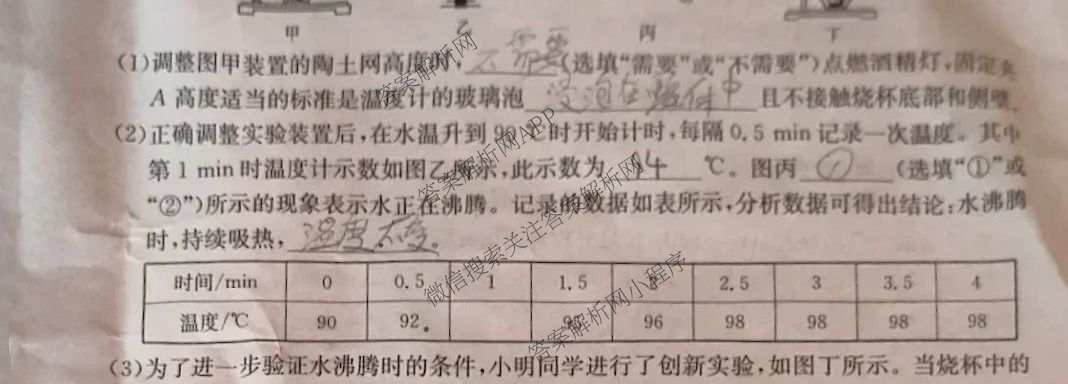 甲 丙 丁
(1)调整图甲装置的陶土网高度时, 不需要 (选填“需要”或“不需要”)点燃酒精灯,固定夹
A 高度适当的标准是温度计的玻璃泡 浸泡在 中 且不接触烧杯底部和侧壁
(2)正确调整实验装置后,在水温升到90 ℃时开始计时,每隔0.5 min记录一次温度。其中
第1 min时温度计示数如图乙所示,此示数为 94 ℃。图丙 ① (选填“①”或
“②”)所示的现象表示水正在沸腾。记录的数据如表所示,分析数据可得出结论:水沸腾
时,持续吸热, 温度不变。
时间/min 0 0.5 1 1.5 2 2.5 3 3.5 4
温度/℃ 90 92. 96 98 98 98 98
(3)为了进一步验证水沸腾时的条件,小明同学进行了创新实验,如图丁所示。当烧杯中的
答案解析网
答案解析网APP
微信搜索关注答案解析网
答案解析网小程序